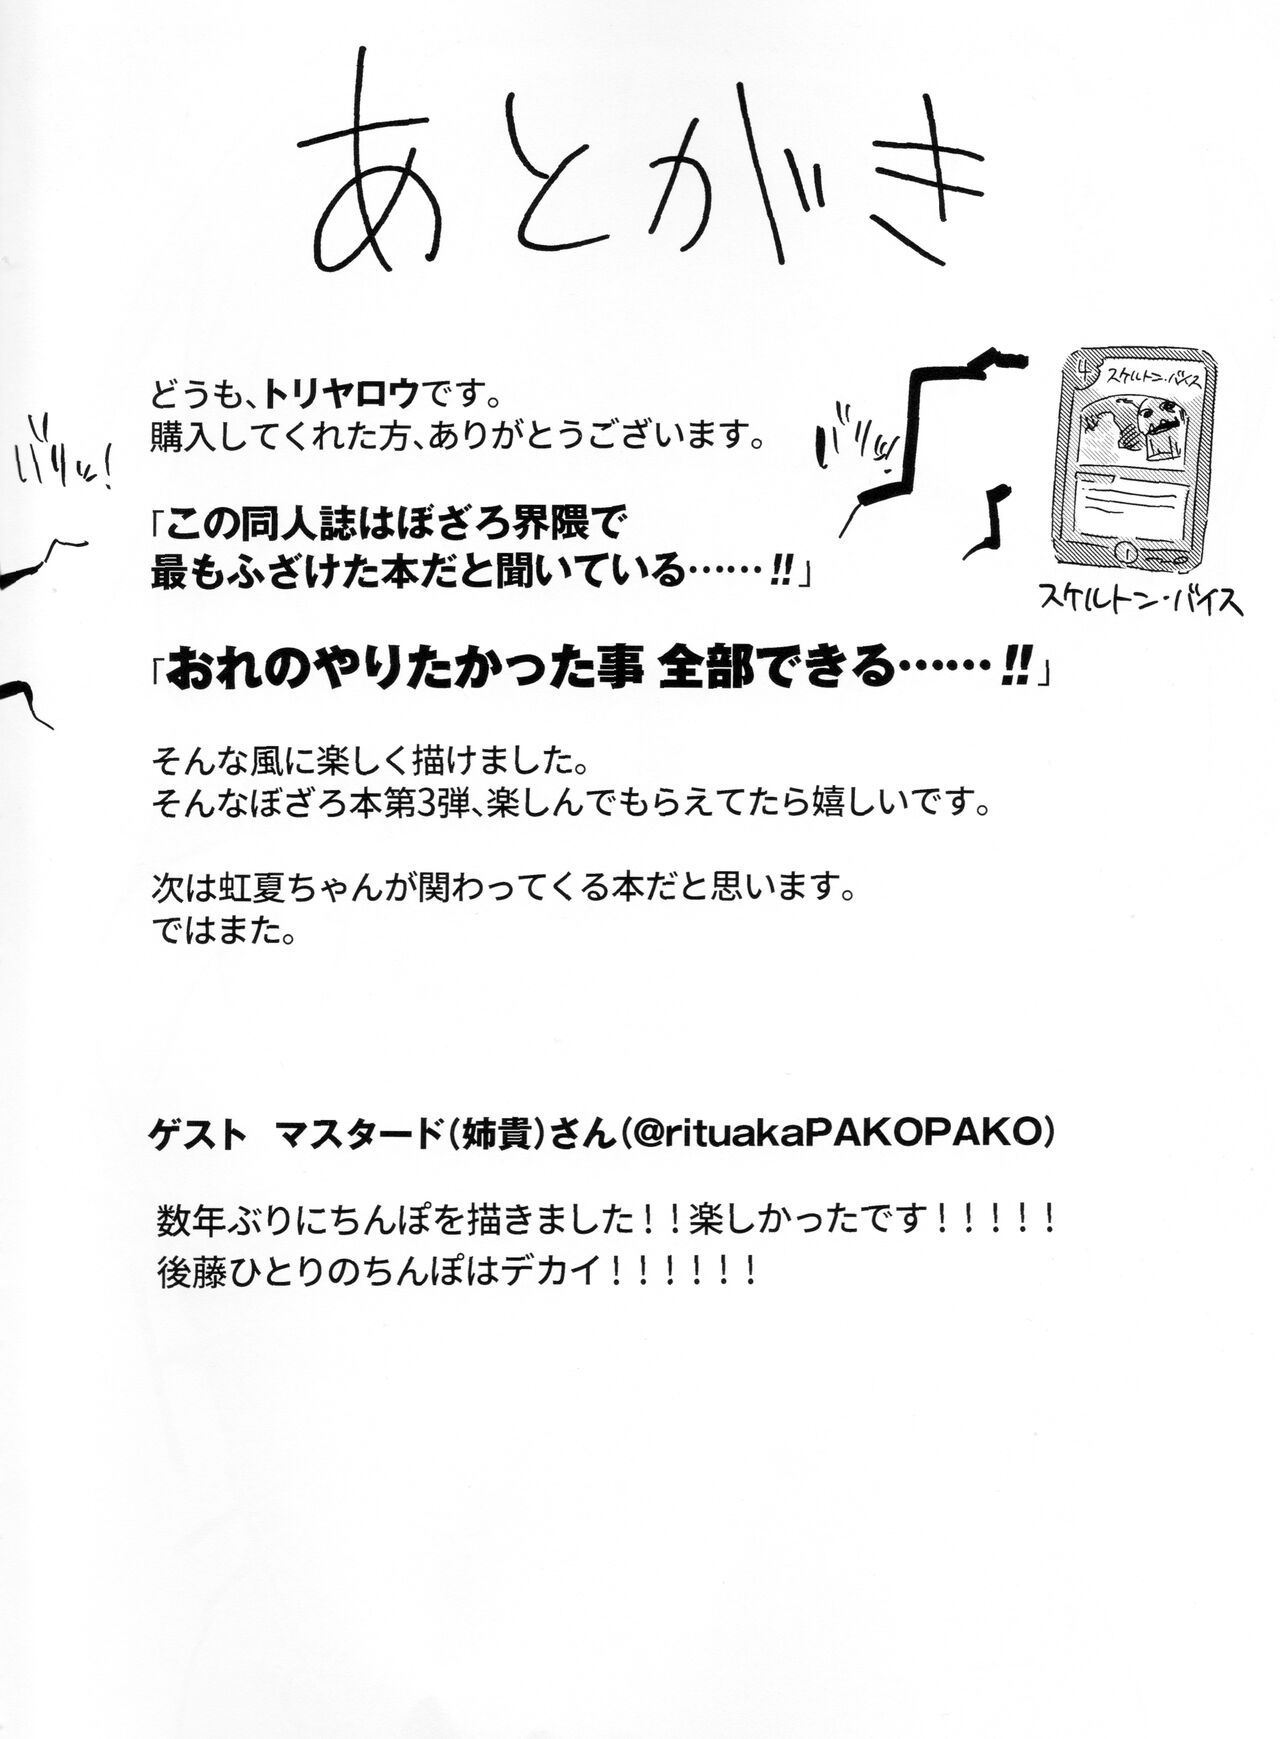 あとがき
どうも、トリヤロウです。
購入してくれた方、ありがとうございます。
バリッ!
バリッ!
4
スケルトン・バイス
スケルトン・バイス
「この同人誌はぼざろ界隈で
最もふざけた本だと聞いている……!!」
「おれのやりたかった事 全部できる……!!」
そんな風に楽しく描けました。
そんなぼざろ本第3弾、楽しんでもらえてたら嬉しいです。
次は虹夏ちゃんが関わってくる本だと思います。
ではまた。
ゲスト マスタード(姉貴)さん(@rituakaPAKOPAKO)
数年ぶりにちんぽを描きました!!楽しかったです!!!!!
後藤ひとりのちんぽはデカイ!!!!!!